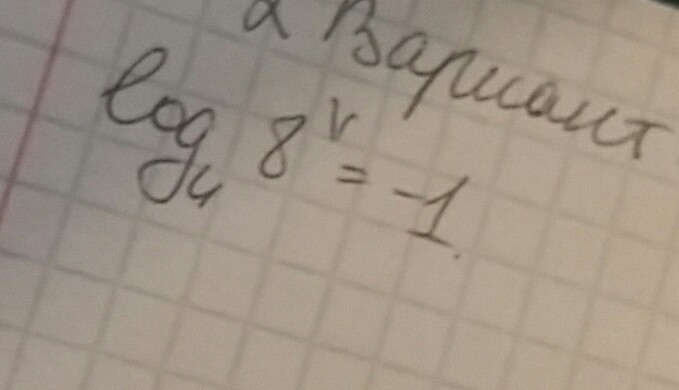 2 Вариант
log₄ 8^r = -1.